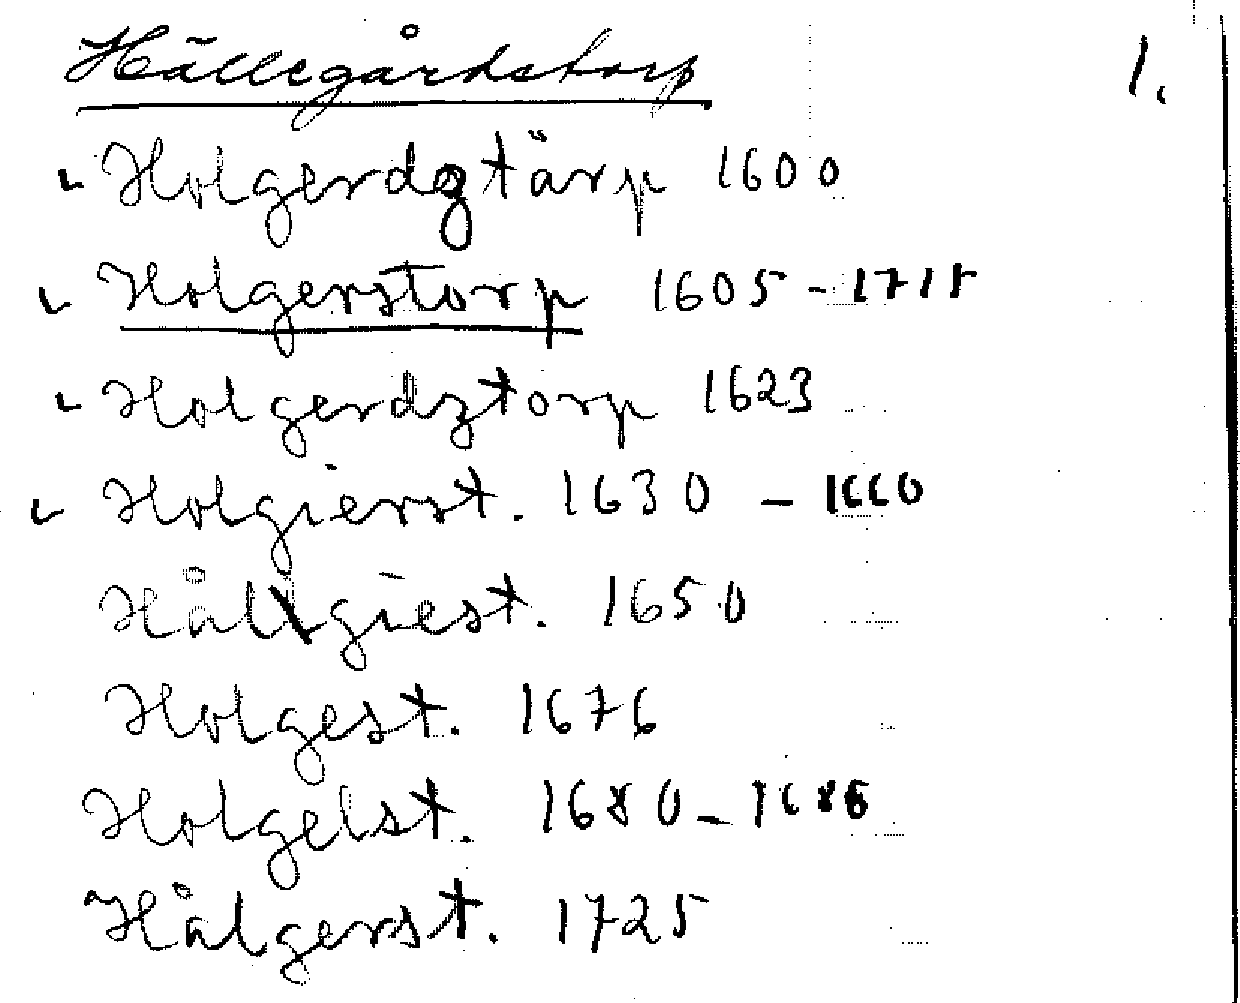 Hällegårdstorp 1.
Holgerdztärp 1600
Holgerstorp 1605 - 1715
Holgerdztorp 1623
Holgierst. 1630 - 1660
Hålgiest. 1650
Holgest. 1676
Holgelst. 1680 - 1686
Hålgerst. 1725